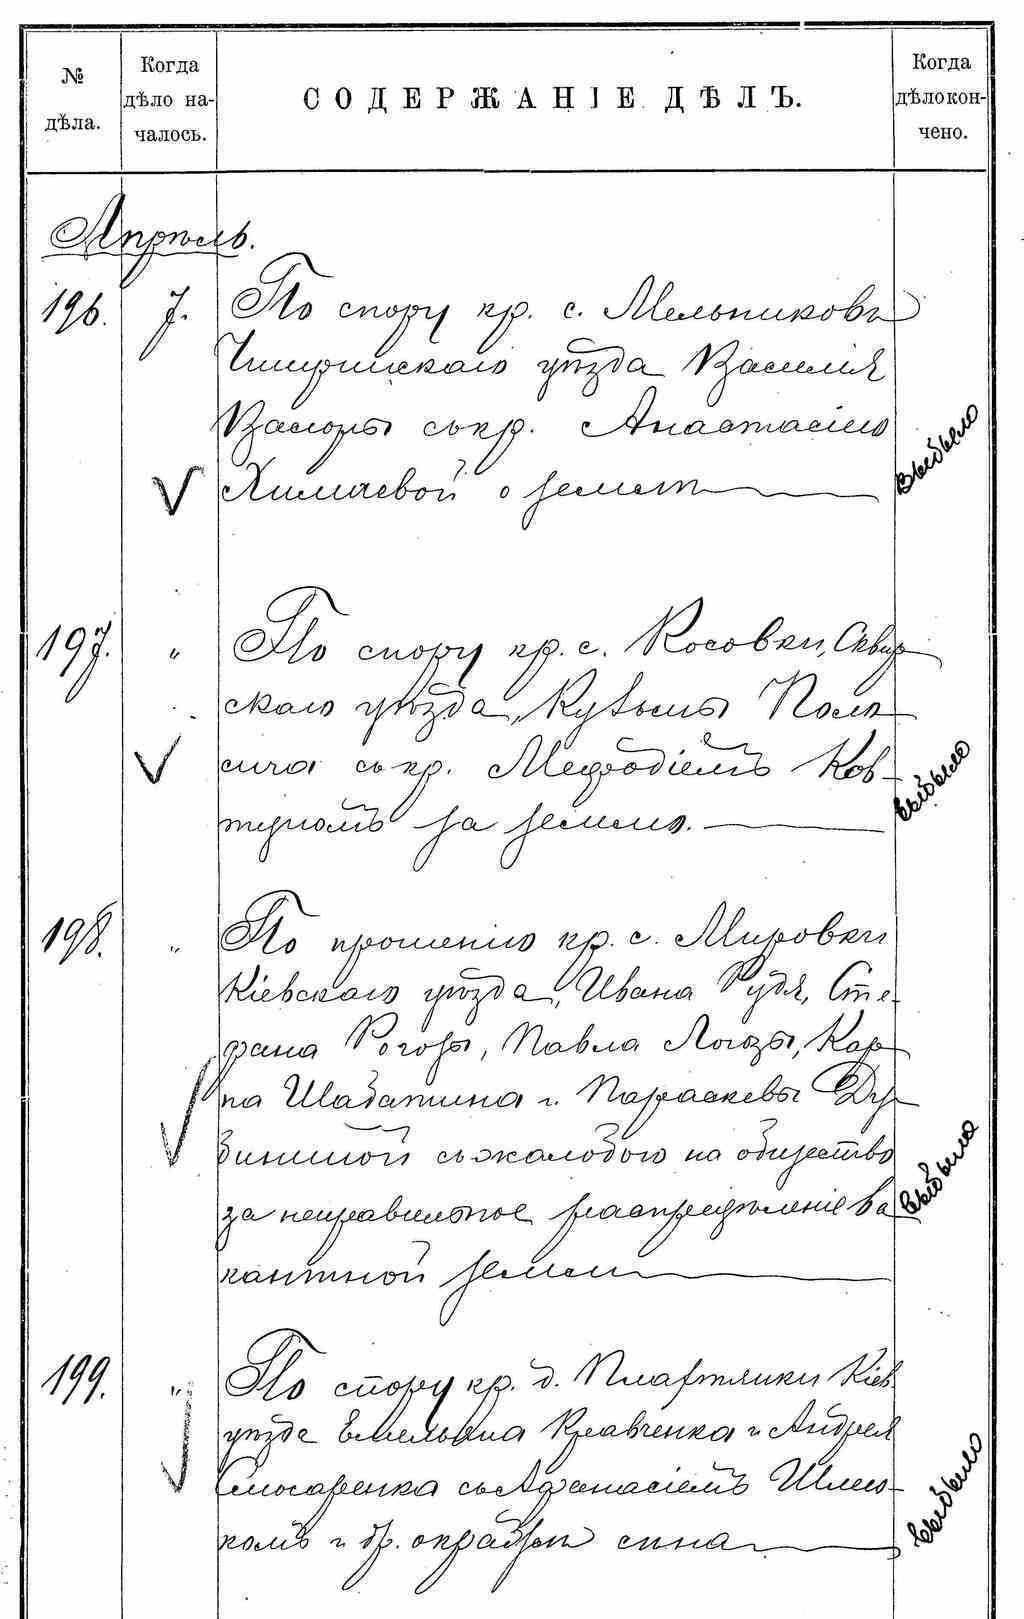 № дѣла.
Когда дѣло началось.
СОДЕРЖАНІЕ ДѢЛЪ.
Когда дѣло кончено.
Апрѣль.
196. 7. По спору кр. с. Мельниковъ
Чигиринскаго уѣзда Василія
съ кр. Анастасіею
Химичевой о землѣ
выбыло
197. " По спору кр. с. Косовки, Сквир
скаго уѣзда, Кузьмы Поли
сича съ кр. Мефодіемъ Ков-
туномъ за землю.
выбыло
198. " По прошенію кр. с. Мировки
Кіевскаго уѣзда, Ивана Рудя, Сте-
фана Рогозы, Павла Логозы, Кар
па Шабатина и Параскевы Ду
бининой съ жалобою на общество
за неправильное распредѣленіе ва
кантной земли
выбыла
199. " По спору кр. д. Плахтянки Кіев.
уѣзда Емельяна Кравченка и Андрея
Слюсаренка съ Афанасіемъ Шлю-
комъ и др. о краже сѣна
выбыло